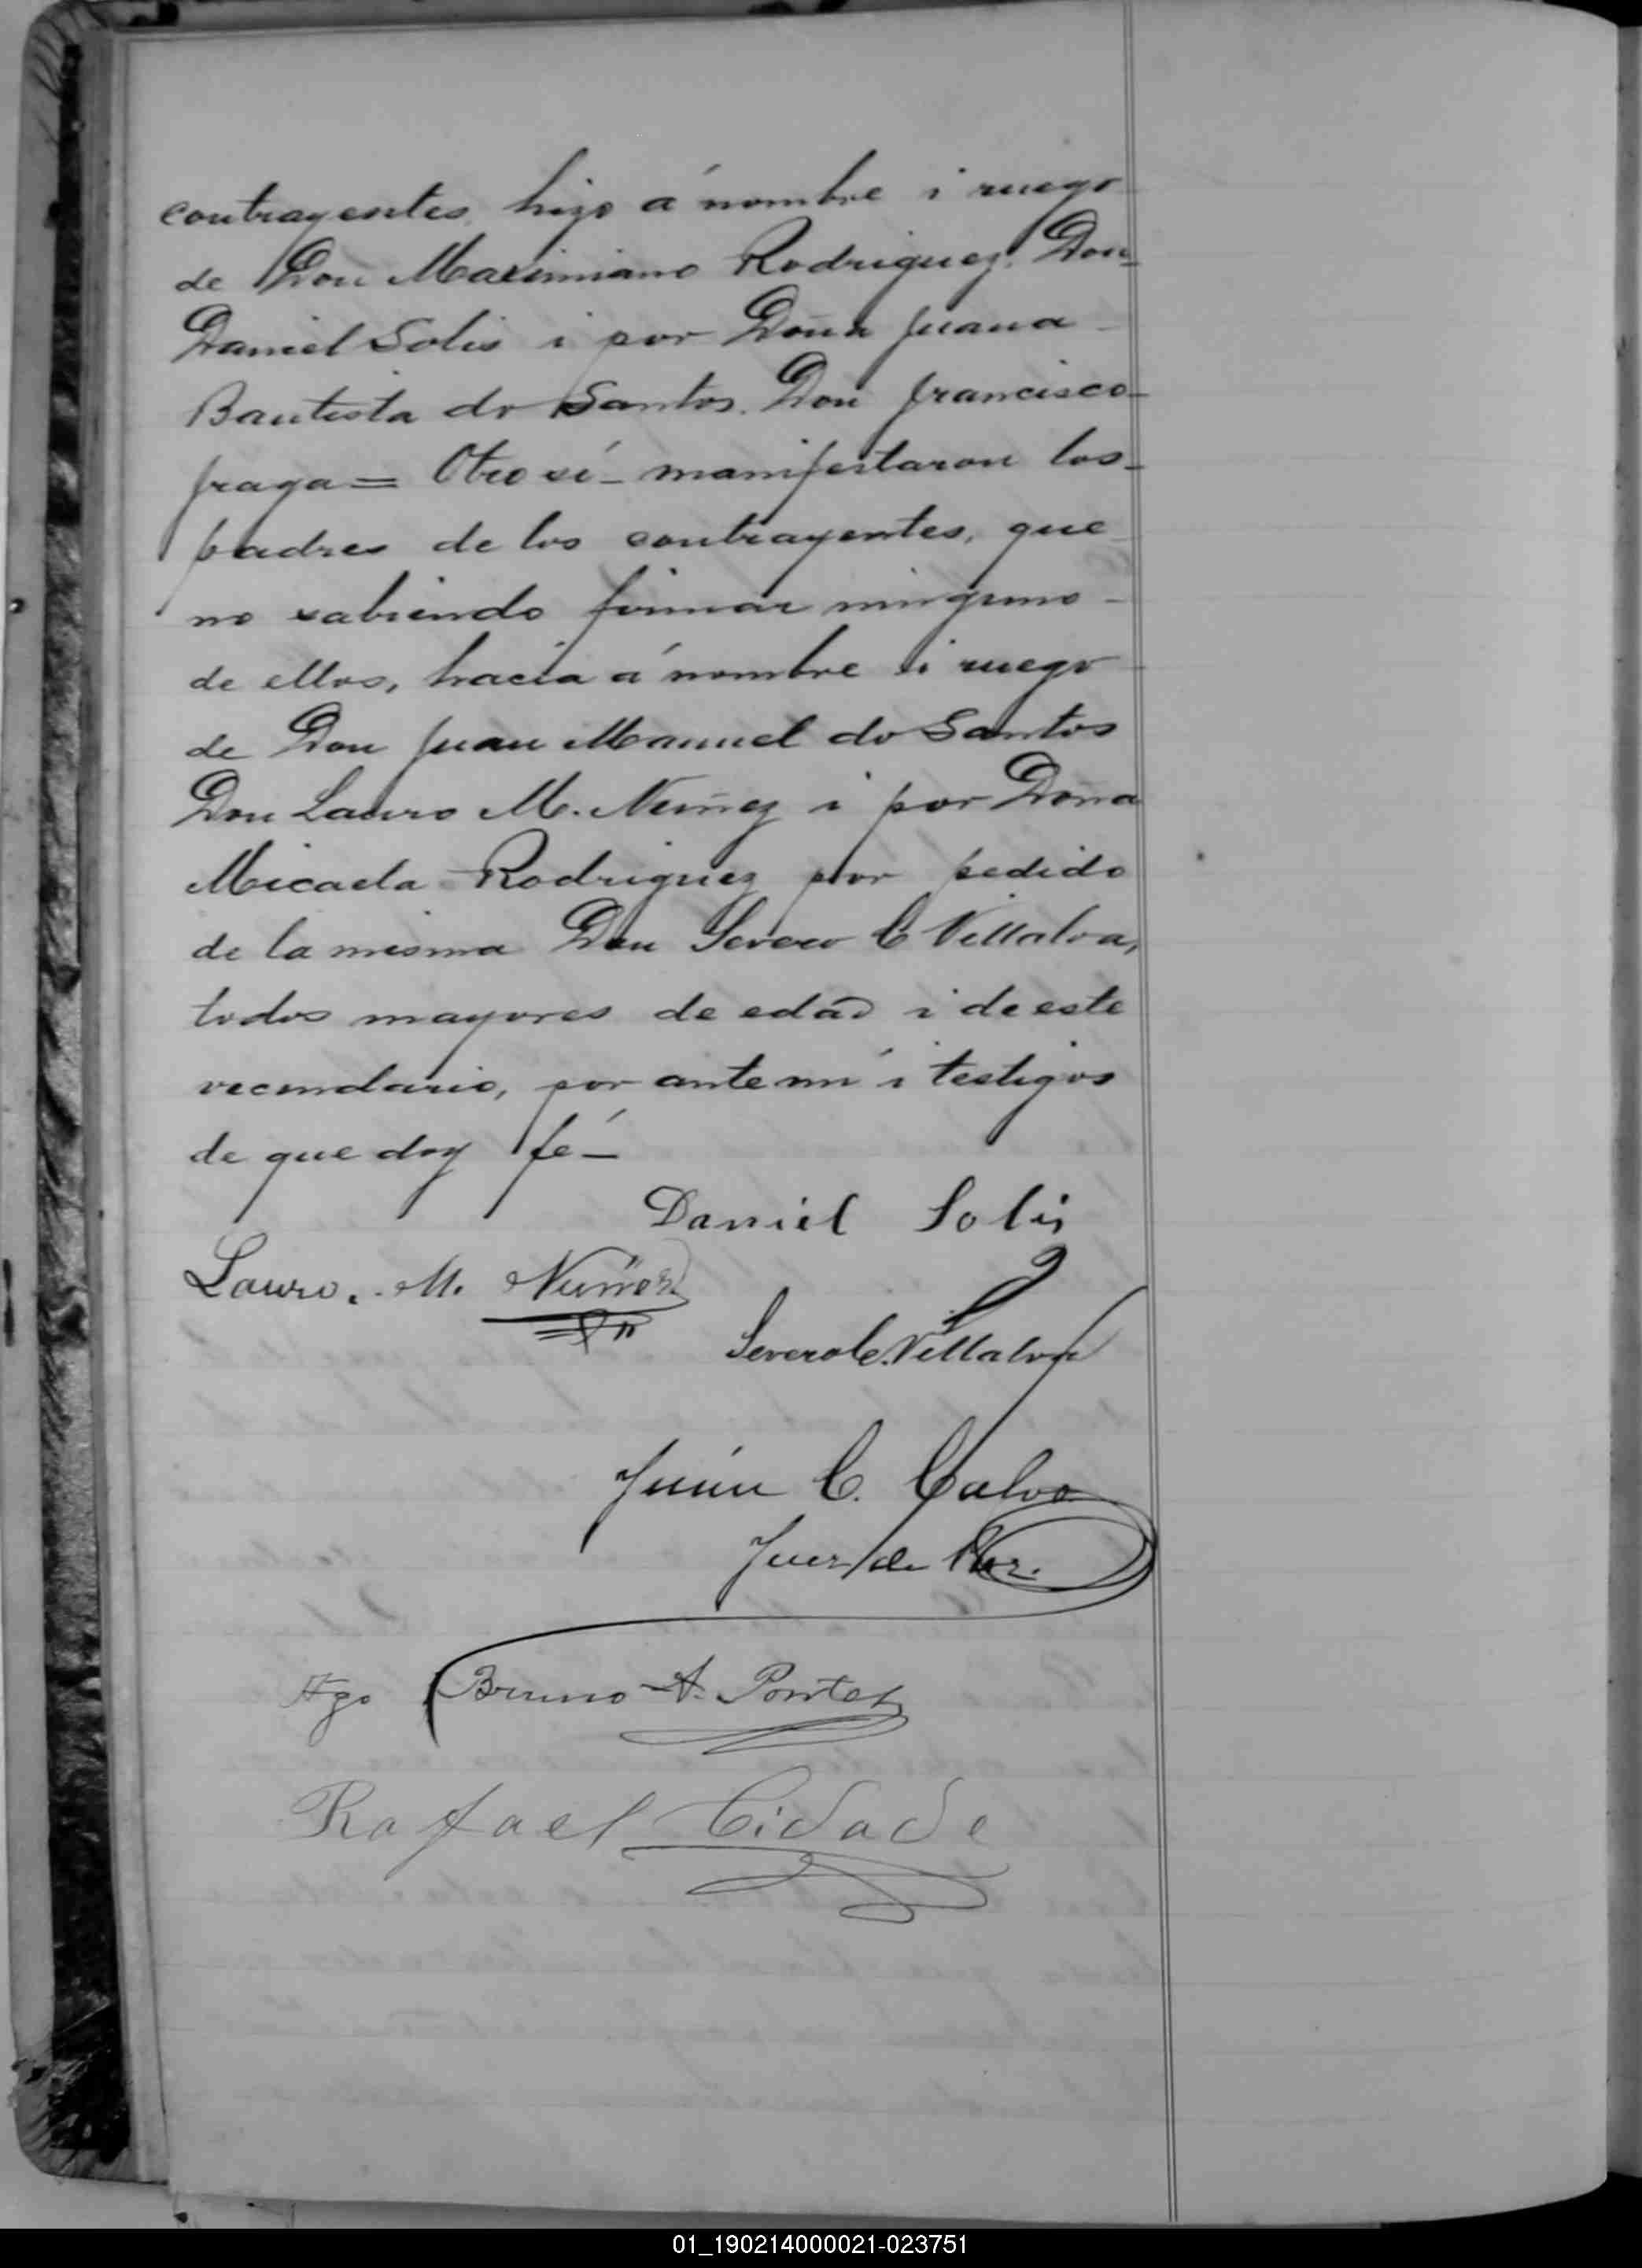 contrayentes, hizo á nombre i ruego
de Don Maximiano Rodriguez. Don
Daniel Solis i por Doña Juana
Bautista do Santos. Don francisco
fraga = Otro sí – manifestaron los
padres de los contrayentes, que
no sabiendo firmar ninguno
de ellos, hacía á nombre i ruego
de Don Juan Manuel do Santos
Don Lauro M. Nuñez i por Doña
Micaela Rodriguez por pedido
de la misma Don Severo C Villalva,
todos mayores de edad i de este
vecindario, por ante mí i testigos
de que doy fé –
Daniel Solis
Lauro. M. Nuñez
Severo C. Villalva
Juan C. Calvo
Juez de Paz.
Tgo Bruno A. Pontes
Rafael Cidade
01_190214000021-023751